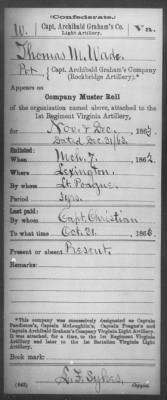 (Confederate.)
W. Capt. Archibald Graham's Co. Va.
Light Artillery.
Thomas M. Wade
Pvt., Capt. Archibald Graham's Company
(Rockbridge Artillery).*
Appears on
Company Muster Roll
of the organization named above, attached to the
1st Regiment Virginia Artillery,
for Nov. & Dec., 1863
Dated Dec. 31, 63.
Enlisted:
When Mch. 7, 186
Where Lexington.
By whom Lt. Poague.
Period yrs.
Last paid:
By whom Capt. Christian
To what time Oct. 31, 1863
Present or absent Present.
Remarks:
*This company was successively designated as Captain
Pendleton's, Captain McLaughlin's, Captain Poague's and
Captain Archibald Graham's Company Virginia Light Artillery.
It was attached, for a time, to the 1st Regiment Virginia
Artillery and later to the 1st Battalion Virginia Light
Artillery.
Book mark:
L. F. Sykes.
(642) Copyist.